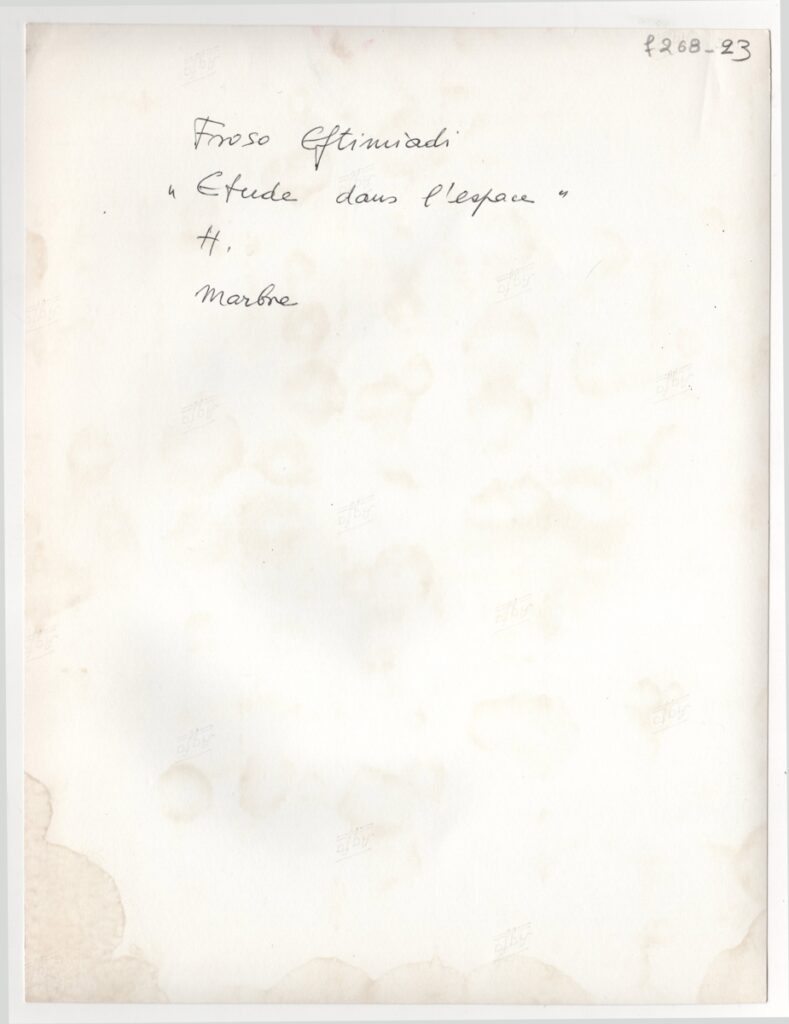 f268-23
Froso Eftimiadi
"Etude dans l'espace"
H.
Marbre